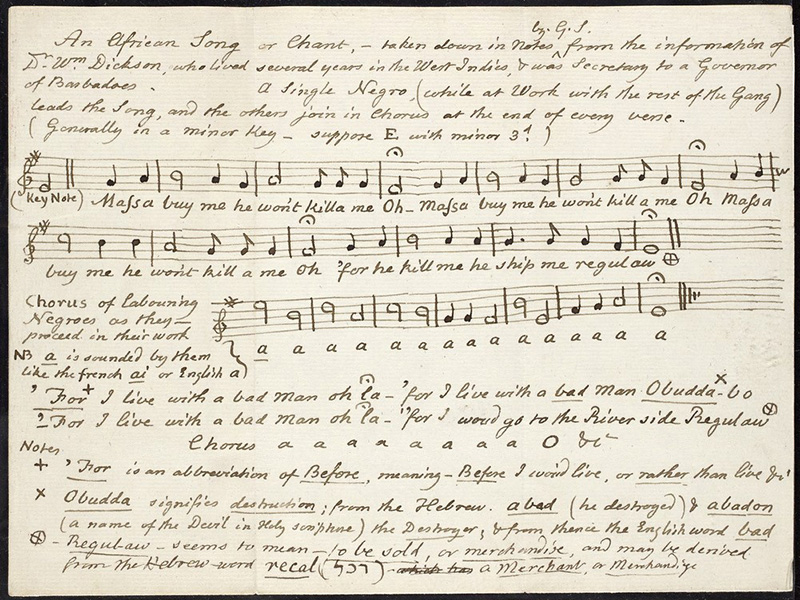 by G.S.
An African Song or Chant, – taken down in Notes ^ from the information of
Dr. Wm. Dickson, who lived several years in the West Indies, & was Secretary to a Governor
of Barbadoes. A Single Negro, (while at Work with the rest of the Gang)
leads the Song, and the others join in Chorus at the end of every verse.
(Generally in a minor Key – suppose E with minor 3d.)
(Key Note) Massa buy me he won't killa me Oh – Massa buy me he won't kill a me Oh Massa
buy me he won't kill a me Oh 'for he kill me he ship me regulaw ⊕
Chorus of labouring
Negroes as they –
proceed in their work
NB a is sounded by them
like the french ai or English a)
a a a a a a a a a
' For + I live with a bad man oh la – 'for I live with a bad man Obudda x - bo
2 'For I live with a bad man oh 'la – 'for I woud go to the River side Regulaw ⊗
Chorus a a a a a a a O &c
Notes
+ 'For is an abbreviation of Before, meaning – Before I would live, or rather than live &c
x Obudda signifies destruction; from the Hebrew. abad (he destroyed) & abadon
(a name of the Devil in Holy scripture) the Destroyer, & from thence the English word bad
⊗ – Regulaw – seems to mean – to be sold, or merchandize, and may be derived
from the Hebrew word recal (רכל) which has a Merchant, or Merchandize